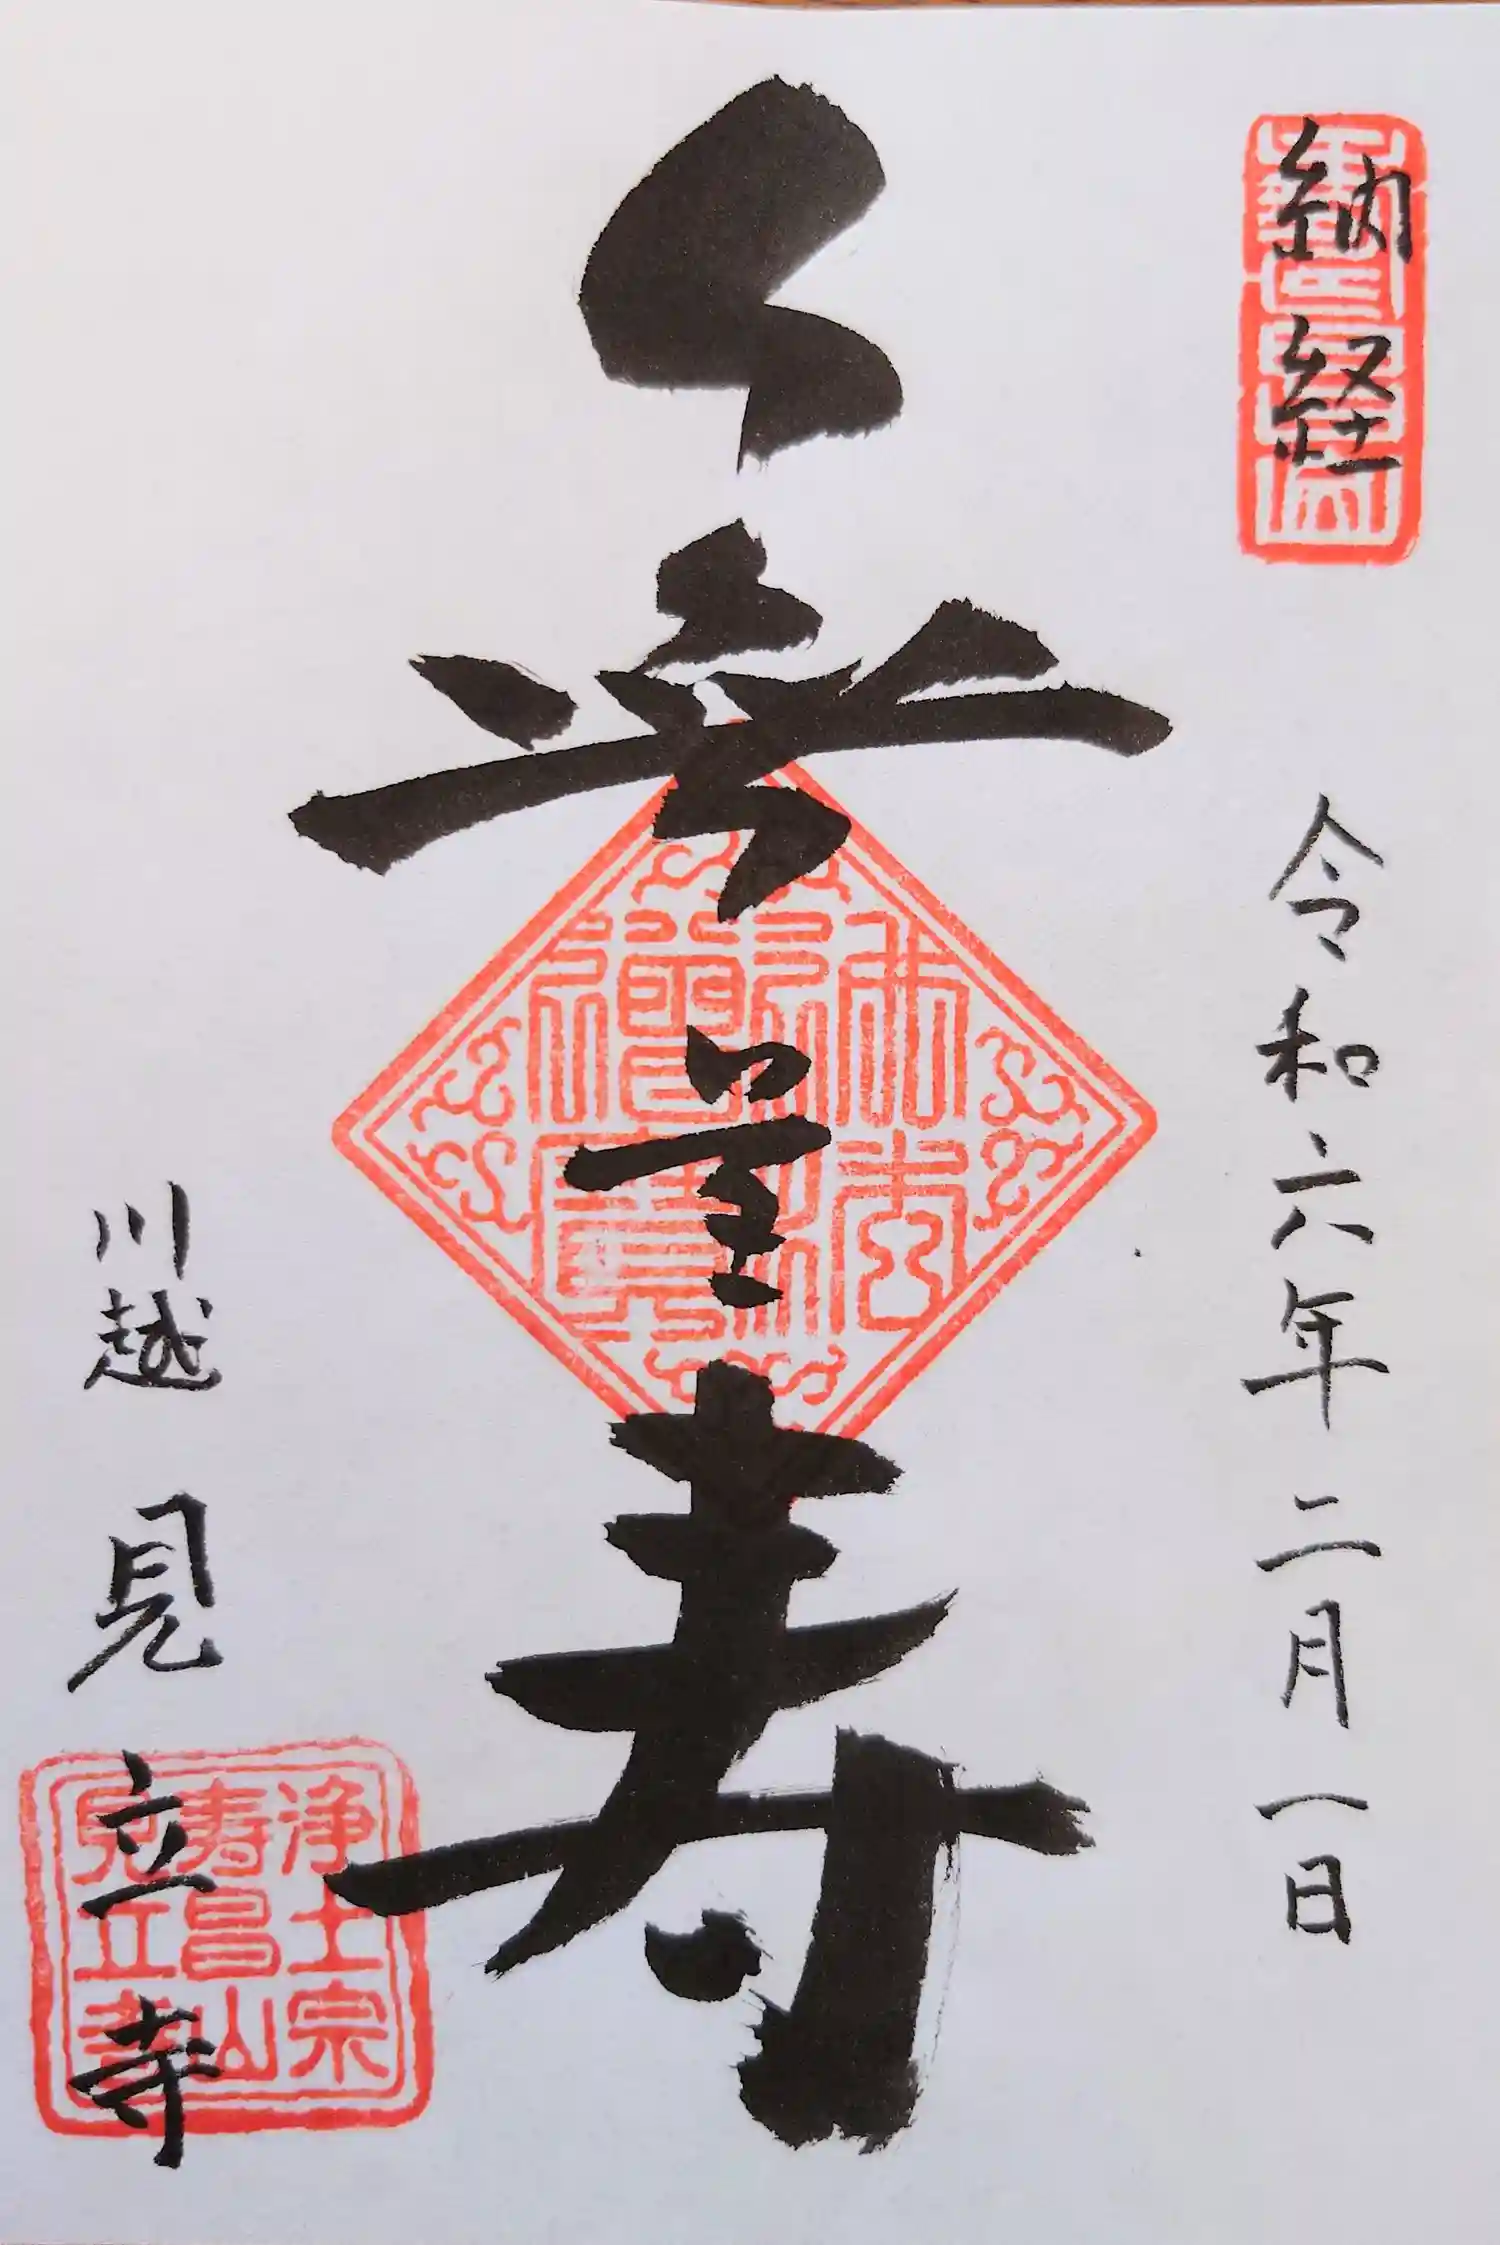 納経
令和六年二月一日
無量寿
佛法
僧寶
川越 見立寺
浄土宗
寿昌山
見立寺